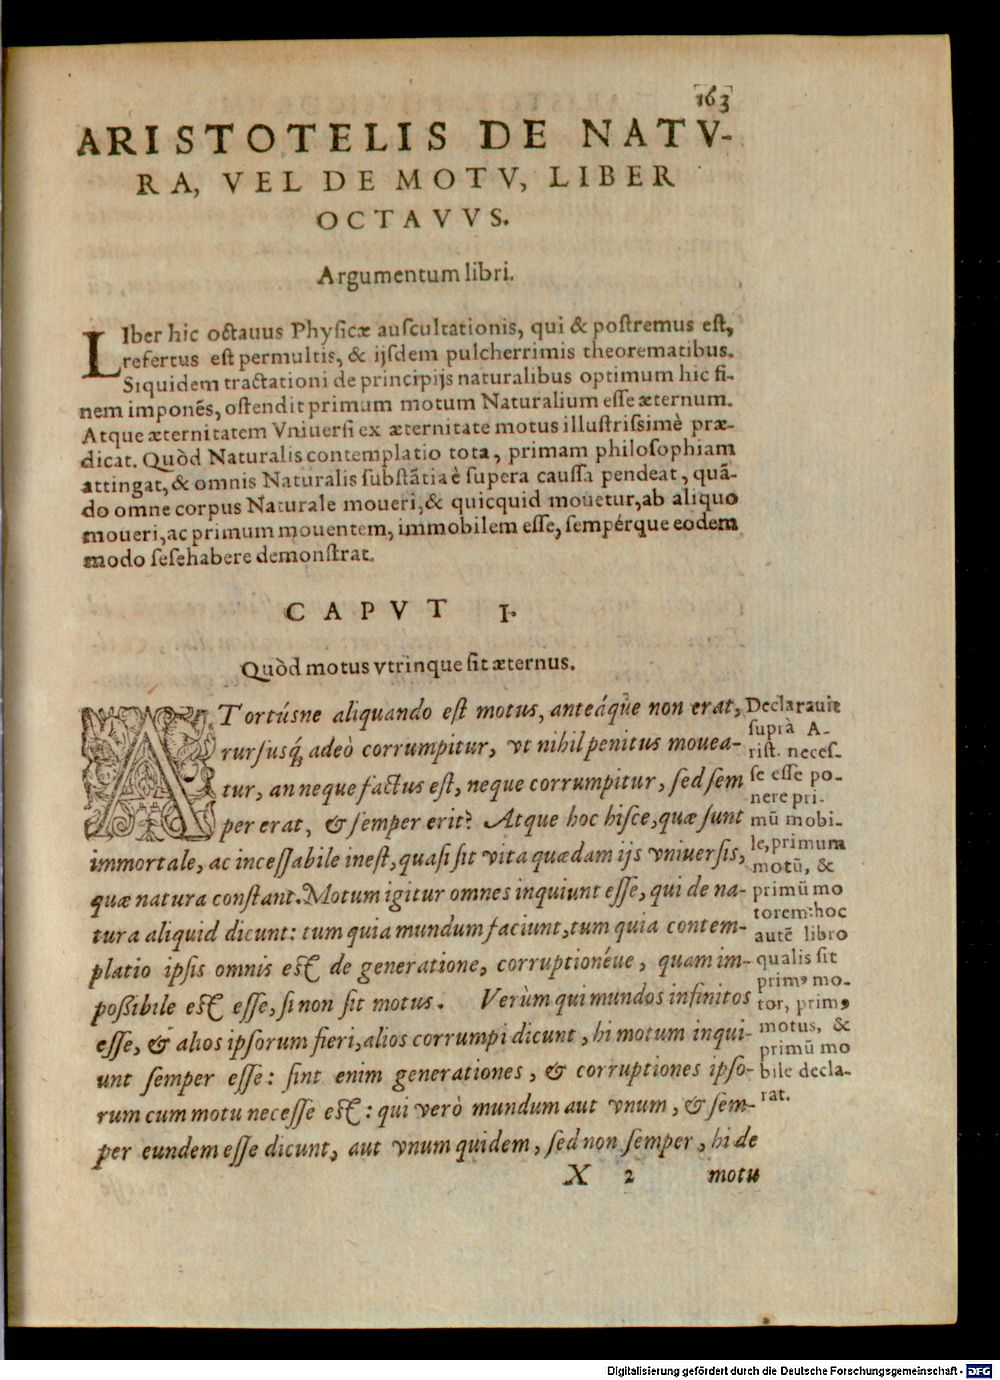 163
ARISTOTELIS DE NATV-
RA, VEL DE MOTV, LIBER
OCTAVVS.
Argumentum libri.
LIber hic octauus Physicæ auscultationis, qui & postremus est,
refertus est permultis, & ijsdem pulcherrimis theorematibus.
Siquidem tractationi de principijs naturalibus optimum hic fi-
nem imponẽs, ostendit primum motum Naturalium esse æternum.
Atque æternitatem Vniuersi ex æternitate motus illustrissimè præ-
dicat. Quòd Naturalis contemplatio tota, primam philosophiam
attingat, & omnis Naturalis substãtia è supera caussa pendeat, quã-
do omne corpus Naturale moueri, & quicquid mouetur, ab aliquo
moueri, ac primum mouentem, immobilem esse, sempérque eodem
modo sese habere demonstrat.
CAPVT I.
Quòd motus vtrinque sit æternus.
ATortúsne aliquando est motus, anteáque non erat,
rursusq́; adeò corrumpitur, vt nihil penitus mouea-
tur, an neque factus est, neque corrumpitur, sed sem
per erat, & semper erit? Atque hoc hisce, quæ sunt
immortale, ac incessabile inest, quasi sit vita quædam ijs vniuersis,
quæ natura constant. Motum igitur omnes inquiunt esse, qui de na-
tura aliquid dicunt: tum quia mundum faciunt, tum quia contem-
platio ipsis omnis est de generatione, corruptionéue, quam im-
possibile est esse, si non sit motus. Verùm qui mundos infinitos
esse, & alios ipsorum fieri, alios corrumpi dicunt, hi motum inqui-
unt semper esse: sint enim generationes, & corruptiones ipso-
rum cum motu necesse est: qui verò mundum aut vnum, & sem-
per eundem esse dicunt, aut vnum quidem, sed non semper, hi de
X 2 motu
Declarauit
suprà A-
rist. neces-
se esse po-
nere pri-
mũ mobi-
le, primum
motũ, &
primũ mo
torem: hoc
autẽ libro
qualis sit
primꝰ mo-
tor, primꝰ
motus, &
primũ mo
bile decla-
rat.
Digitalisierung gefördert durch die Deutsche Forschungsgemeinschaft - DFG